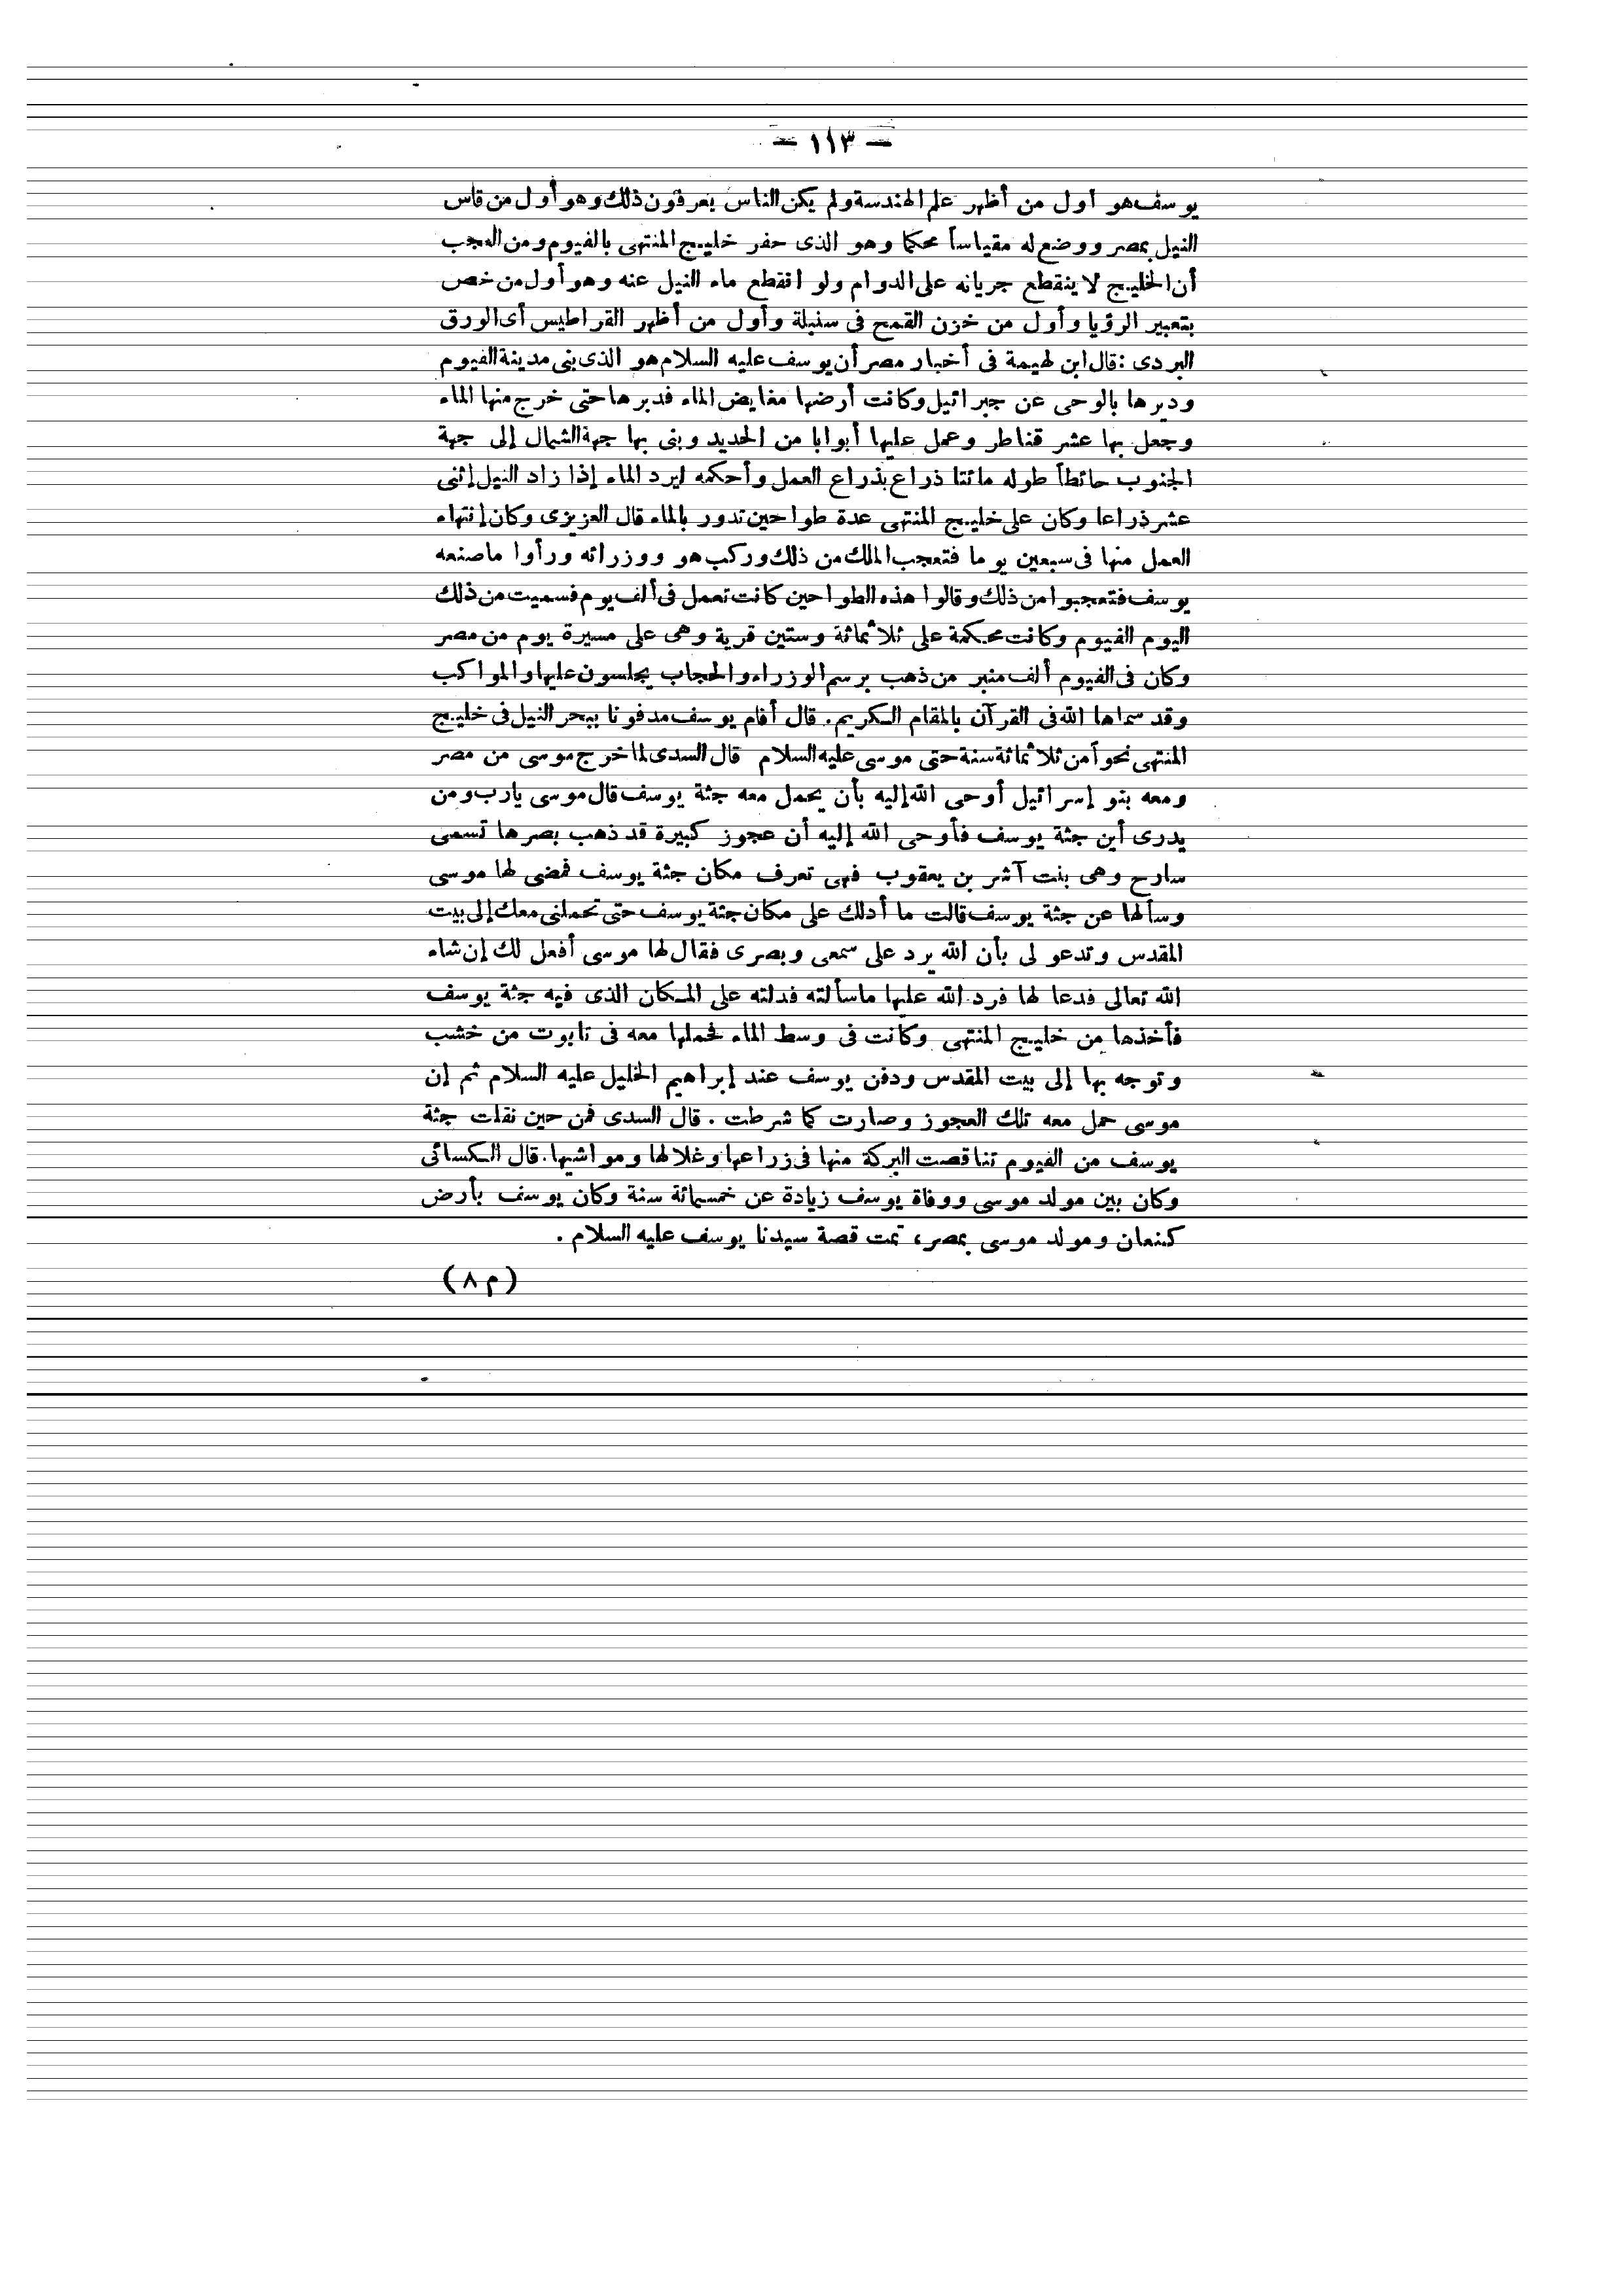 — ١١٣ —
يوسف هو أول من أظهر علم الهندسة ولم يكن الناس يعرفون ذلك وهو أول من قاس
النيل بمصر ووضع له مقياساً محكما وهو الذى حفر خليج المنتهى بالفيوم ومن العجب
أن الخليج لا ينقطع جريانه على الدوام ولو انقطع ماء النيل عنه وهو أول من خص
بتعبير الرؤيا وأول من خزن القمح فى سنبلة وأول من أظهر القراطيس أى الورق
البردى : قال ابن لهيمة فى أخبار مصر أن يوسف عليه السلام هو الذى بنى مدينة الفيوم
ودبرها بالوحى عن جبرائيل وكانت أرضها مغايض الماء فدبرها حتى خرج منها الماء
وجعل بها عشر قناطر وعمل عليها أبوابا من الحديد وبنى بها جهة الشمال إلى جهة
الجنوب حائطاً طوله مائتا ذراع بذراع العمل وأحكمه ليرد الماء إذا زاد النيل إثنى
عشر ذراعا وكان على خليج المنتهى عدة طواحين تدور بالماء قال العزيزى وكان إنتهاء
العمل منها فى سبعين يوما فتعجب الملك من ذلك وركب هو ووزرائه ورأوا ما صنعه
يوسف فتعجبوا من ذلك وقالوا هذه الطواحين كانت تعمل فى ألف يوم فسميت من ذلك
اليوم الفيوم وكانت محكمة على ثلاثمائة وستين قرية وهى على مسيرة يوم من مصر
وكان فى الفيوم ألف منبر من ذهب برسم الوزراء والحجاب يجلسون عليها والمواكب
وقد سماها الله فى القرآن بالمقام الكريم. قال أقام يوسف مدفونا ببحر النيل فى خليج
المنتهى نحواً من ثلاثمائة سنة حتى موسى عليه السلام قال السدى لما خرج موسى من مصر
ومعه بنو إسرائيل أوحى الله إليه بأن يحمل معه جثة يوسف قال موسى يارب ومن
يدرى أين جثة يوسف فأوحى الله إليه أن عجوز كبيرة قد ذهب بصرها تسمى
سارح وهى بنت آشر بن يعقوب فهى تعرف مكان جثة يوسف فمضى لها موسى
وسألها عن جثة يوسف قالت ما أدلك على مكان جثة يوسف حتى تحملنى معك إلى بيت
المقدس وتدعو لى بأن الله يرد على سمعى وبصرى فقال لها موسى أفعل لك إن شاء
الله تعالى فدعا لها فرد الله عليها ما سألته فدلته على المكان الذى فيه جثة يوسف
فأخذها من خليج المنتهى وكانت فى وسط الماء فحملها معه فى تابوت من خشب
وتوجه بها إلى بيت المقدس ودفن يوسف عند إبراهيم الخليل عليه السلام ثم إن
موسى حمل معه تلك العجوز وصارت كما شرطت . قال السدى فمن حين نقلت جثة
يوسف من الفيوم تناقصت البركة منها فى زراعها وغلالها ومواشيها. قال الكسائى
وكان بين مولد موسى ووفاة يوسف زيادة عن خمسمائة سنة وكان يوسف بأرض
كنعان ومولد موسى بمصر، تمت قصة سيدنا يوسف عليه السلام .
(م ٨)